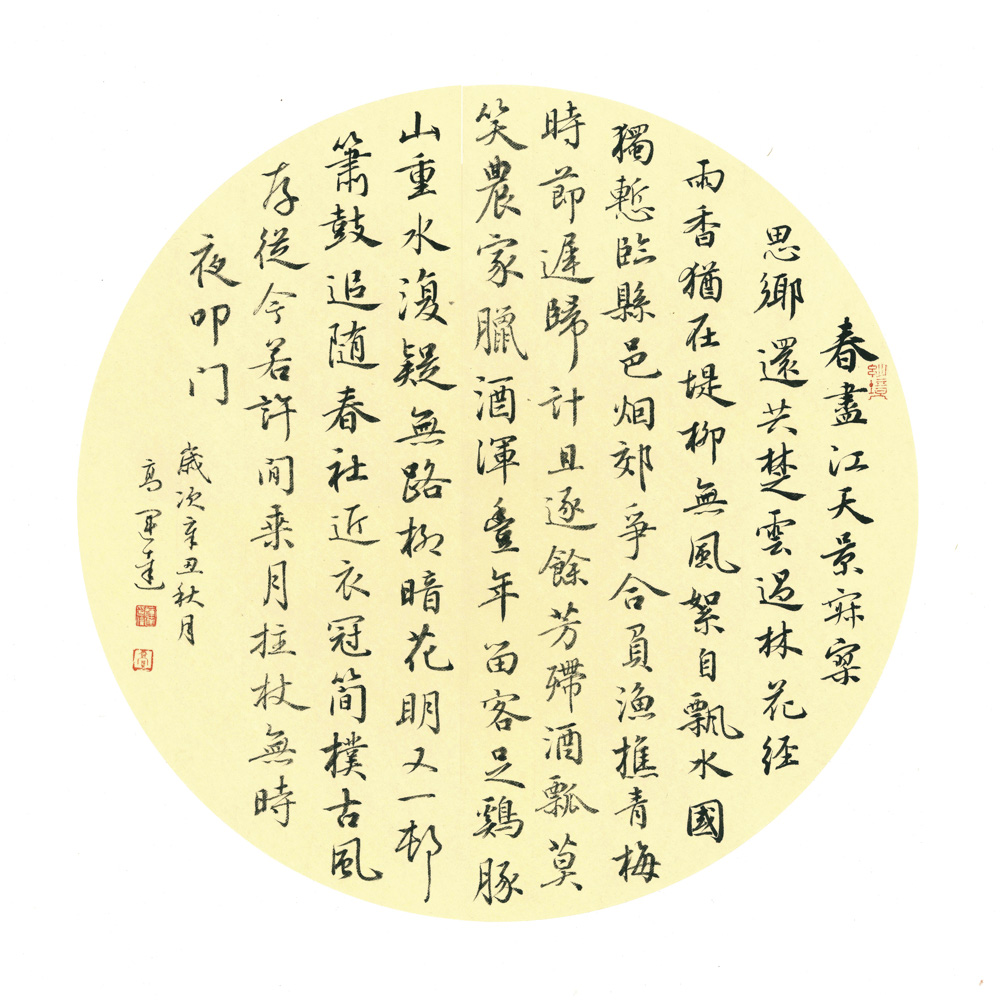 春盡江天景寂寥
思鄉還共楚雲遥林花經
雨香猶在堤柳無風絮自飄水國
獨慙臨縣邑烟郊爭合負漁樵青梅
時節遲歸計且逐餘芳殢酒瓢莫
笑農家臘酒渾豊年留客足鷄豚
山重水復疑無路柳暗花明又一邨
簫鼓追随春社近衣冠簡樸古風
存從今若許閒乘月拄杖無時
夜叩门
歲次辛丑秋月
高運達